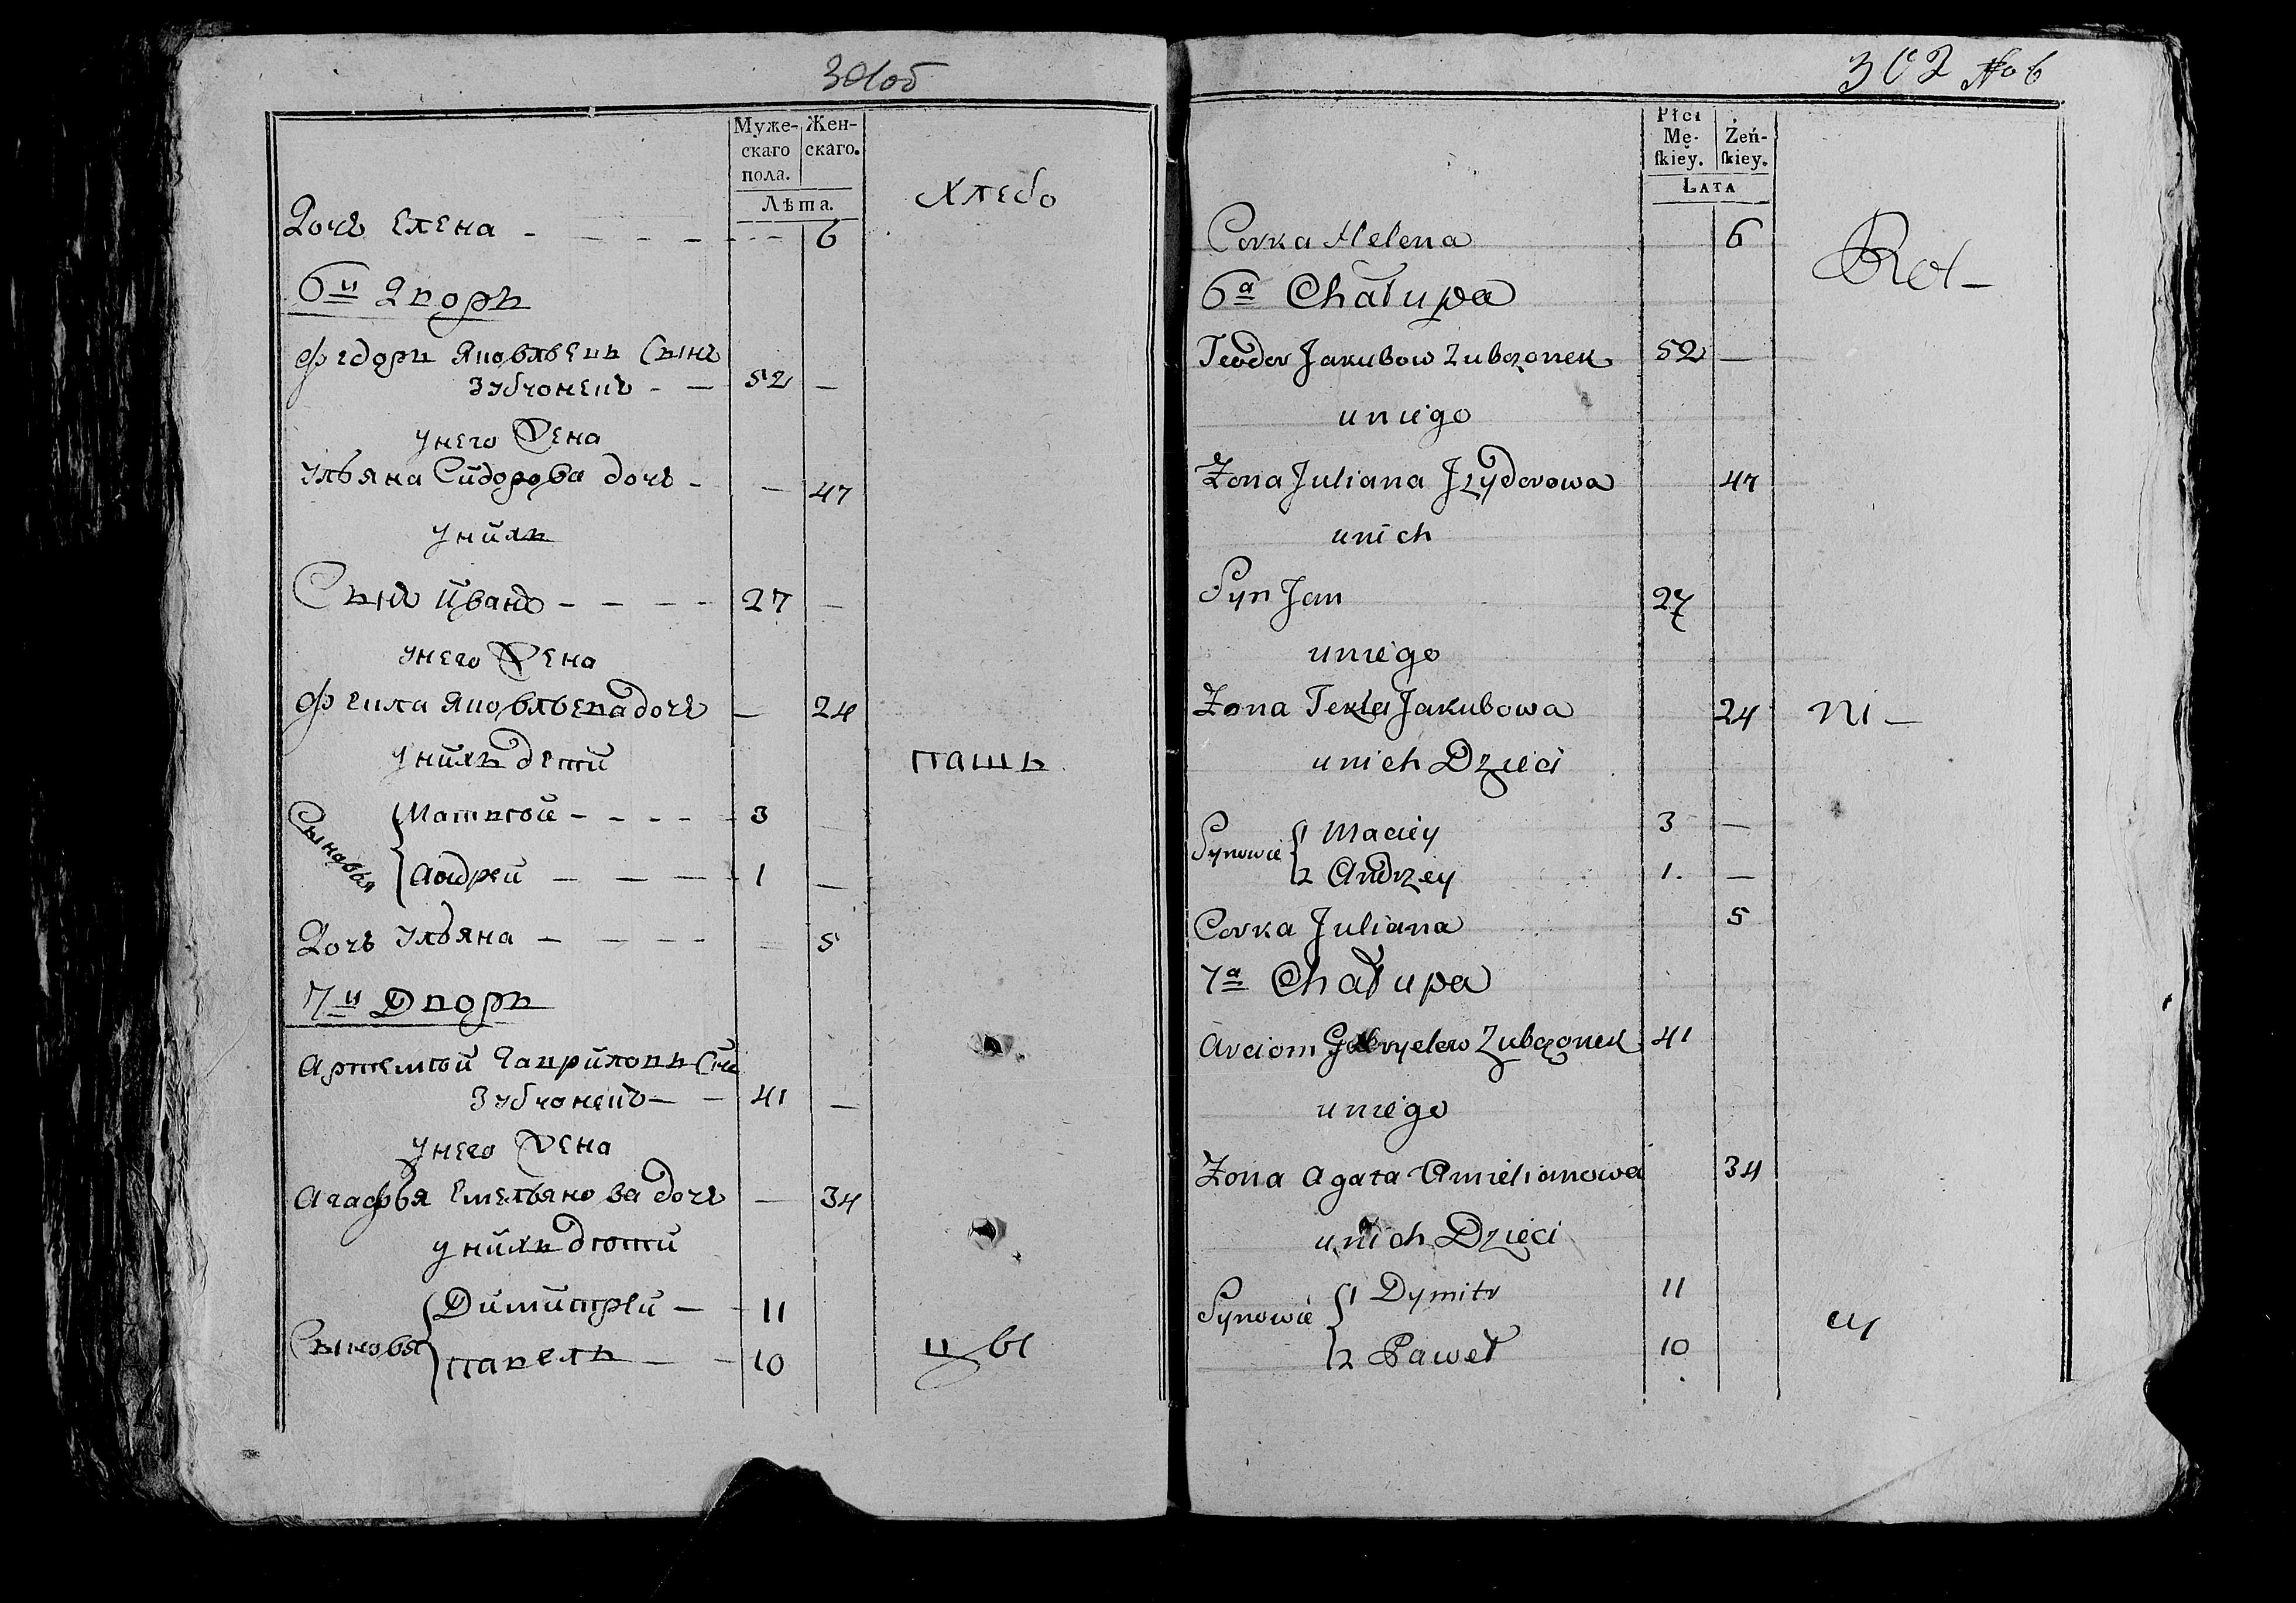 301об
Муже- Жен-
скаго скаго.
пола.
Лѣта.
Хлебо
Дочь Елена - - - - - - - 6
6й Дворъ
Федоръ Яковлевъ Сынъ
Зубчонекъ - - 52 -
унего Жена
Ульяна Сидорова дочь - - 47
унихъ
Сынъ Иванъ - - - - 27 -
унего Жена
Фекла Яковлева дочь - 24
унихъ дети
пашъ
Сыновья
Матвей - - - - - 3 -
Андрей - - - - 1 -
Дочь Ульяна - - - - - 5
7й Дворъ
Артемий Гаврилов Сынъ
Зубчонекъ - - 41 -
унего Жена
Агафья Емельянова дочь - 34
унихъ дети
Сыновья
Димитрей - - 11
павелъ - - 10
цы
302 No 6
Płci
Mę- Żeń-
skiey. skiey.
LATA
Corka Helena 6
Rol-
6a Chałupa
Teodor Jakubow Zubczonek 52 -
uniego
Zona Juliana Jzydorowa 47
unich
Syn Jan 27
uniego
Zona Tekla Jakubowa 24
ni-
unich Dzieci
Synowie
1 Maciey 3 -
2 Andrzey 1. -
Corka Juliana 5
7a Chałupa
Arciom Gabryelew Zubczonek 41
uniego
Zona Agata Amielianowa 34
unich Dzieci
Synowie
1 Dymitr 11
2 Paweł 10
cy